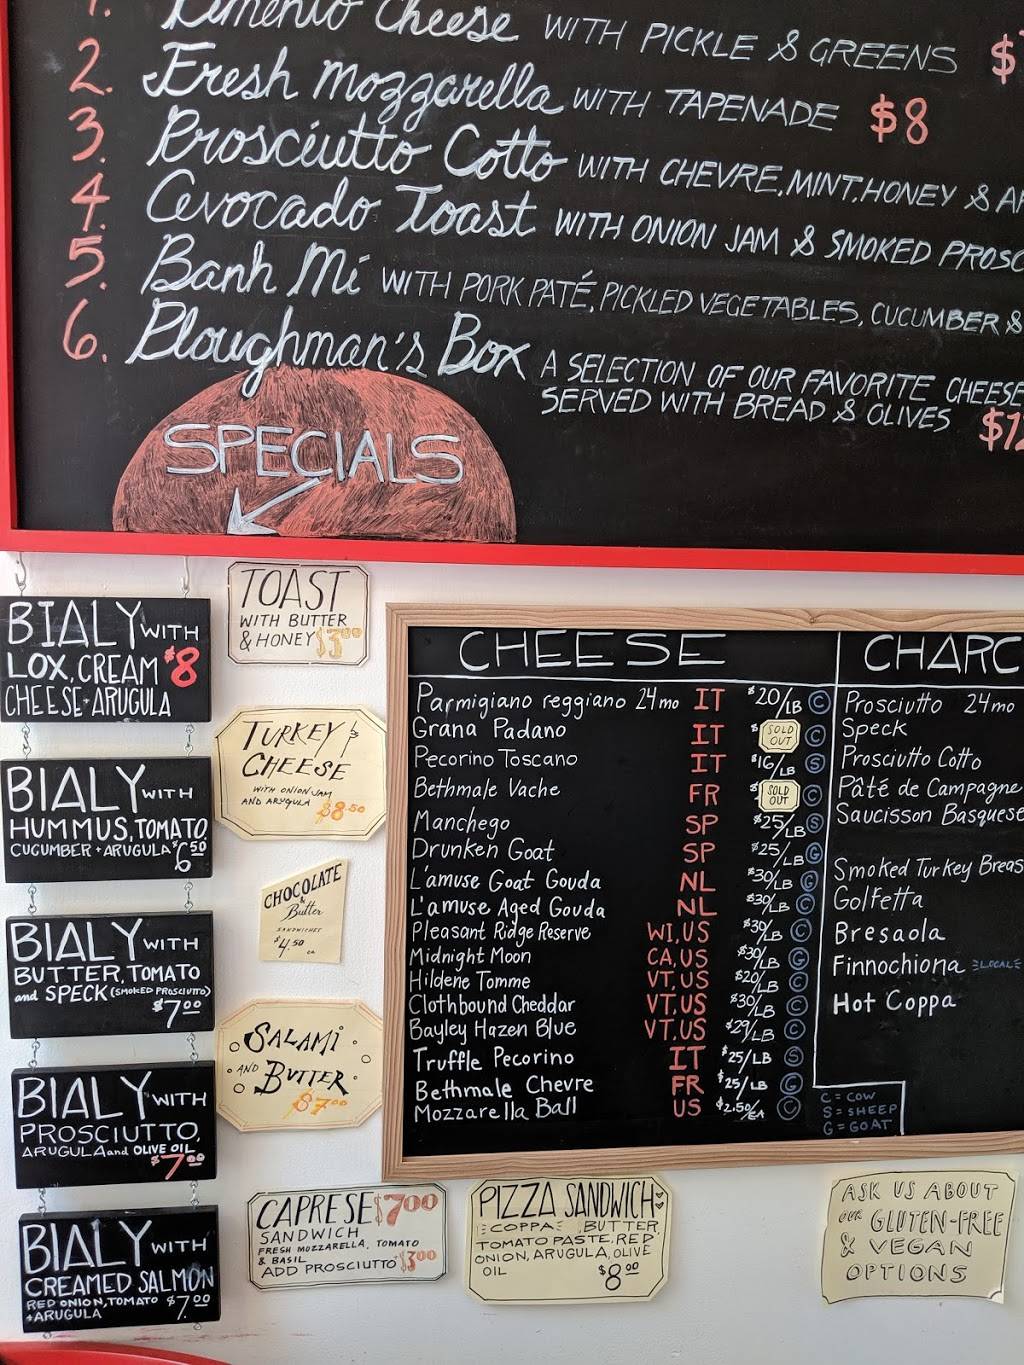 1. Pimento Cheese WITH PICKLE & GREENS $
2. Fresh Mozzarella WITH TAPENADE $8
3. Prosciutto Cotto WITH CHEVRE, MINT, HONEY &
4. Avocado Toast WITH ONION JAM & SMOKED
5. Banh Mi WITH PORK PATÉ, PICKLED VEGETABLES, CUCUMBER &
6. Ploughman's Box A SELECTION OF OUR FAVORITE CHEESE
SERVED WITH BREAD & OLIVES
SPECIALS
BIALY WITH
LOX, CREAM $8
CHEESE + ARUGULA
BIALY WITH
HUMMUS, TOMATO,
CUCUMBER + ARUGULA $6.50
BIALY WITH
BUTTER, TOMATO
and SPECK (SMOKED PROSCIUTTO)
$7.00
BIALY WITH
PROSCIUTTO,
ARUGULA and OLIVE OIL
$7.00
BIALY WITH
CREAMED SALMON
RED ONION, TOMATO $7.00
+ ARUGULA
TOAST
WITH BUTTER
& HONEY $3.00
TURKEY &
CHEESE
WITH ONION JAM
AND ARUGULA $8.50
CHOCOLATE
&
Butter
SANDWICHES
$4.50
ea
SALAMI
AND
BUTTER
$7.00
CAPRESE $7.00
SANDWICH
FRESH MOZZARELLA, TOMATO
& BASIL
ADD PROSCIUTTO $3.00
PIZZA SANDWICH
COPPA BUTTER
TOMATO PASTE, RED
ONION, ARUGULA, OLIVE
OIL $8.00
CHEESE
Parmigiano reggiano 24mo IT $20/LB C
Grana Padano IT $ SOLD OUT C
Pecorino Toscano IT $16/LB S
Bethmale Vache FR $ SOLD OUT C
Manchego SP $25/LB S
Drunken Goat SP $25/LB G
L'amuse Goat Gouda NL $30/LB G
L'amuse Aged Gouda NL $30/LB C
Pleasant Ridge Reserve WI, US $30/LB C
Midnight Moon CA, US $30/LB G
Hildene Tomme VT, US $20/LB C
Clothbound Cheddar VT, US $30/LB C
Bayley Hazen Blue VT, US $29/LB C
Truffle Pecorino IT $25/LB S
Bethmale Chevre FR $25/LB G
Mozzarella Ball US $2.50/EA C
C = COW
S = SHEEP
G = GOAT
CHARC
Prosciutto 24mo
Speck
Prosciutto Cotto
Pâté de Campagne
Saucisson Basquese
Smoked Turkey Breas
Golfetta
Bresaola
Finnochiona LOCAL
Hot Coppa
ASK US ABOUT
OUR GLUTEN-FREE
& VEGAN
OPTIONS